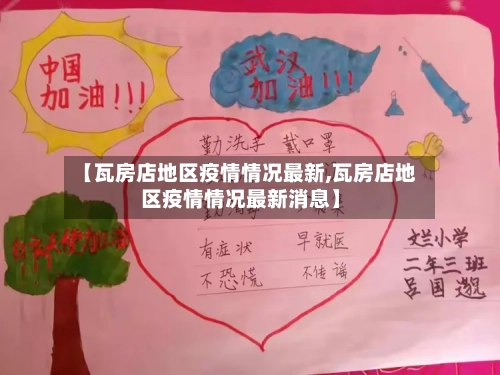 中国
加油!!!
武汉
加油!!!
勤洗手 戴口罩
【瓦房店地区疫情情况最新,瓦房店地
区疫情情况最新消息】
有症状 早就医
不恐慌 不传谣
文兰小学
二年三班
吕国